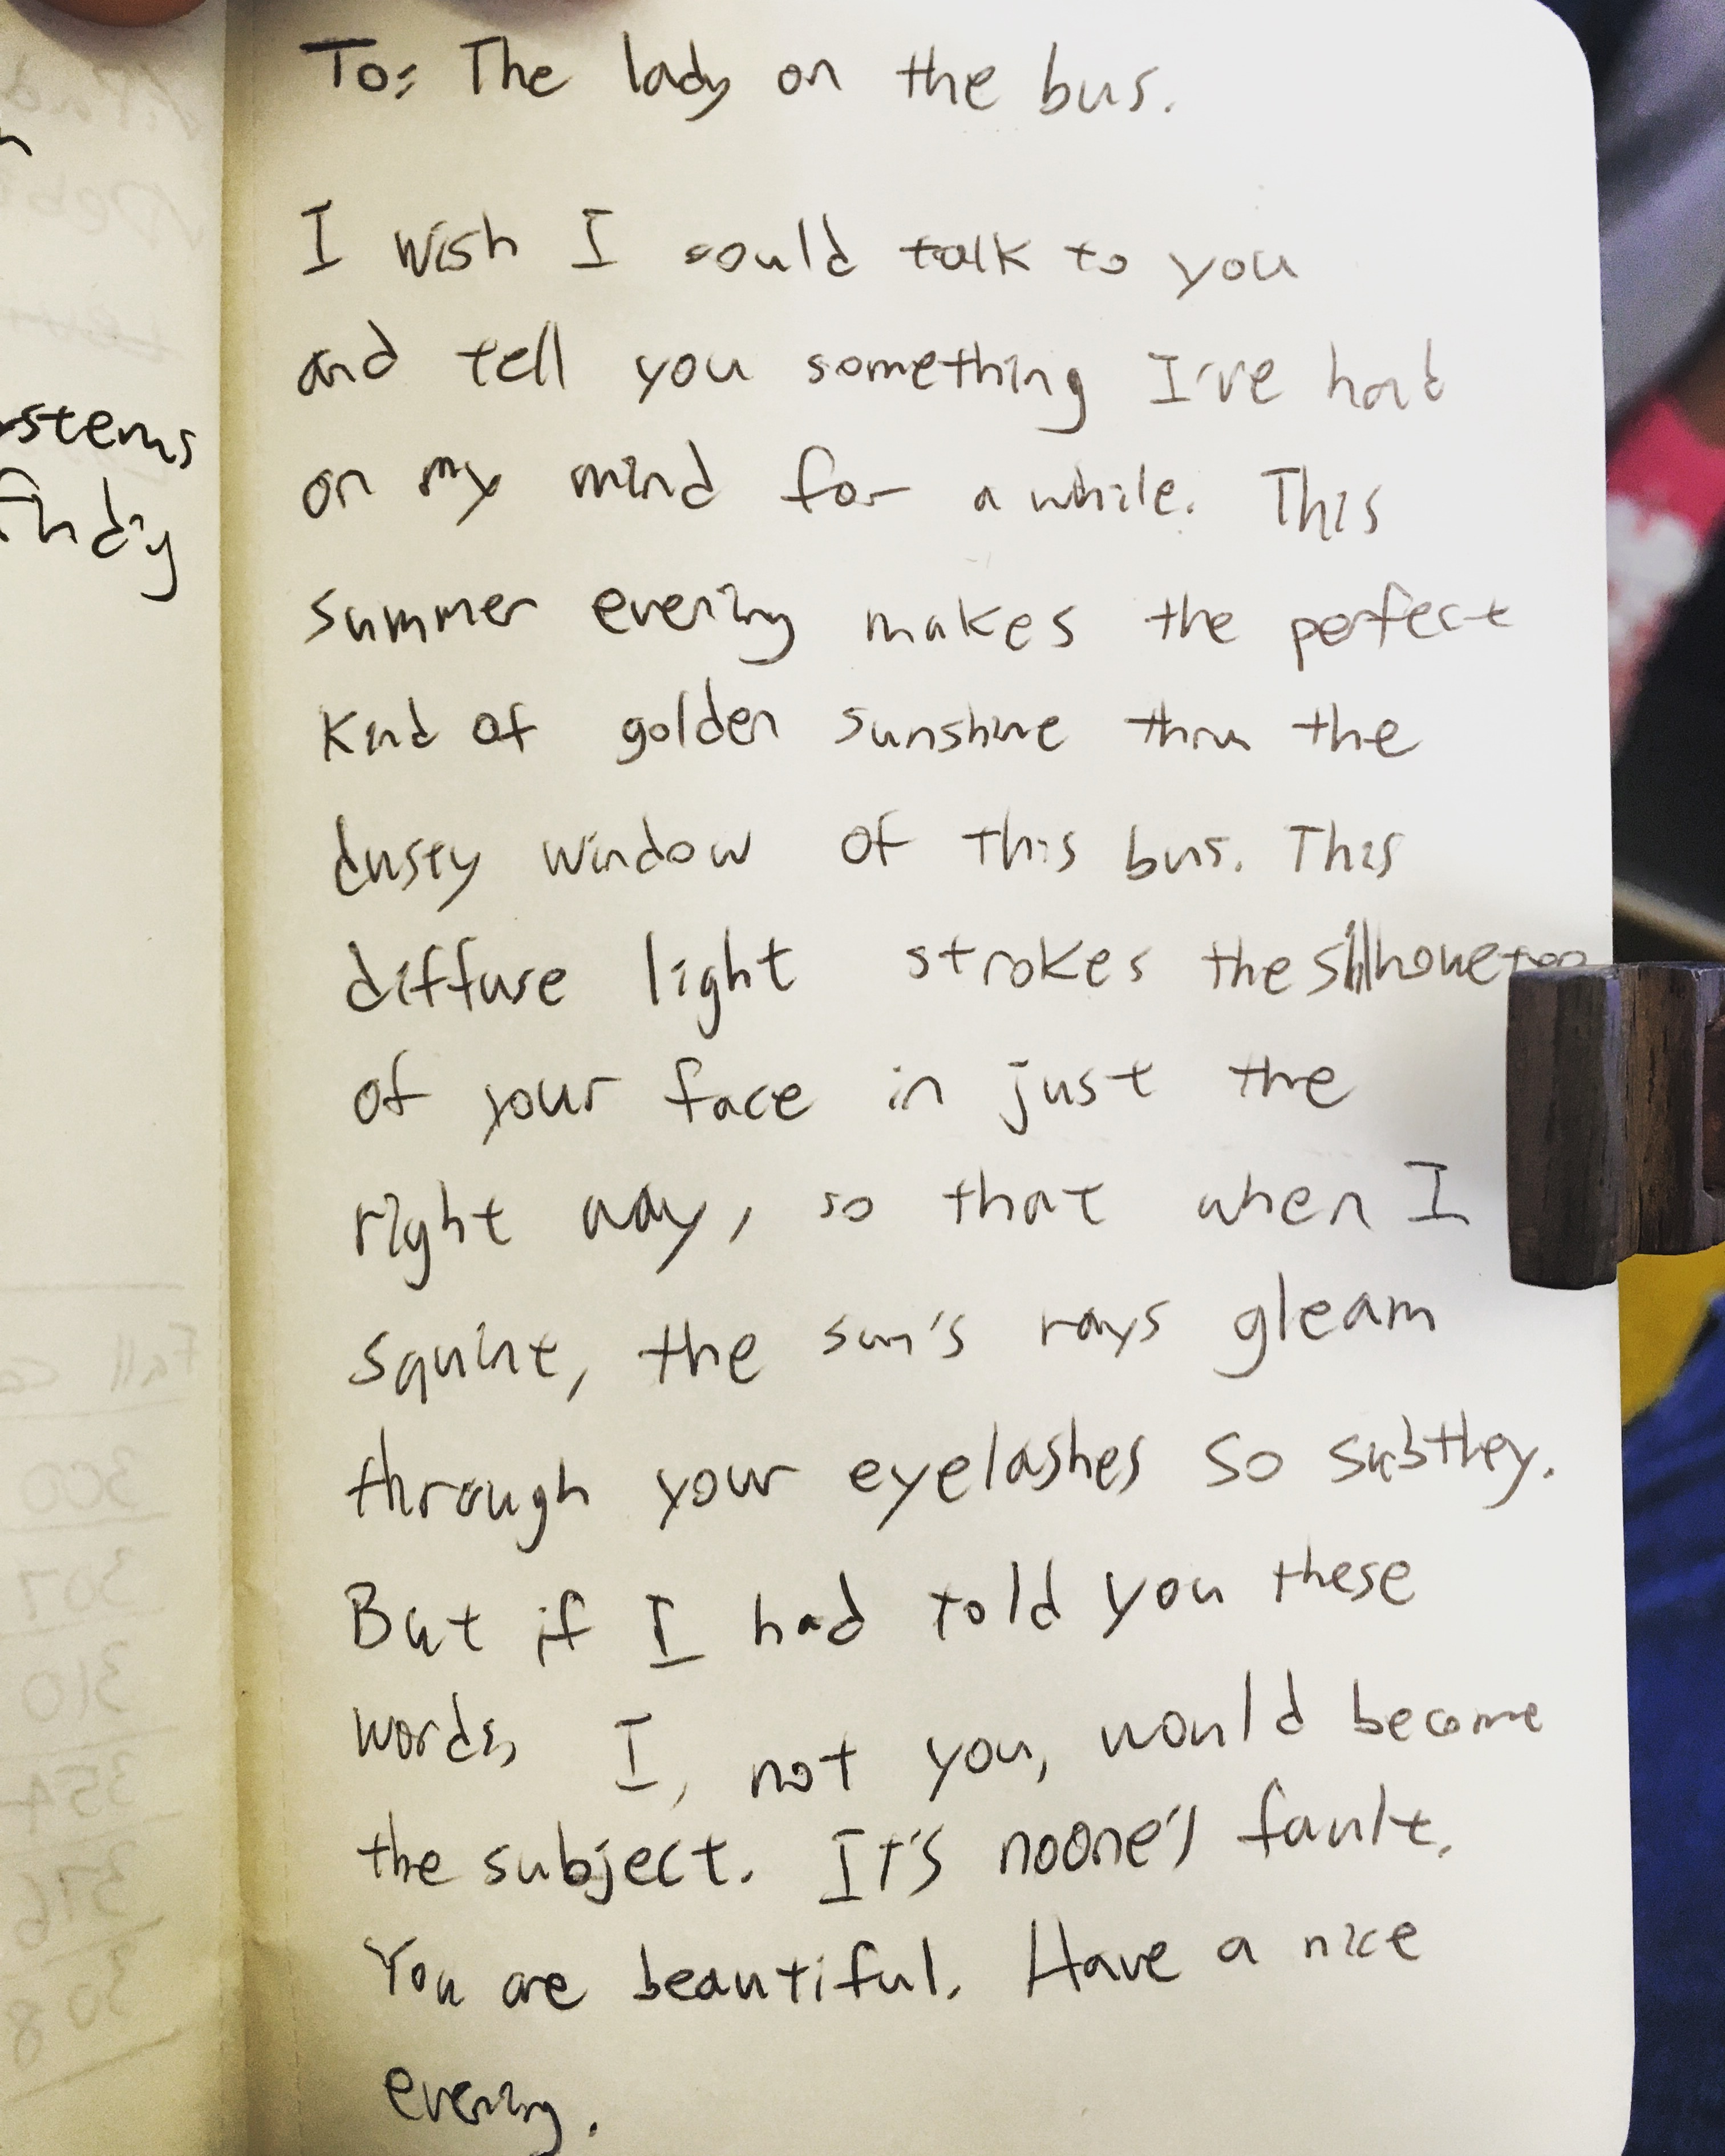 To: The lady on the bus.
I wish I could talk to you
and tell you something I've had
on my mind for a while. This
summer evening makes the perfect
kind of golden sunshine thru the
dusty window of this bus. This
diffuse light strokes the
of your face in just the
right way, so that when I
squint, the sun's rays gleam
through your eyelashes so subtley.
But if I had told you these
words, I, not you, would become
the subject. It's noone's fault.
You are beautiful. Have a nice
evening.
stems
Fall
300
307
310
354
376
308